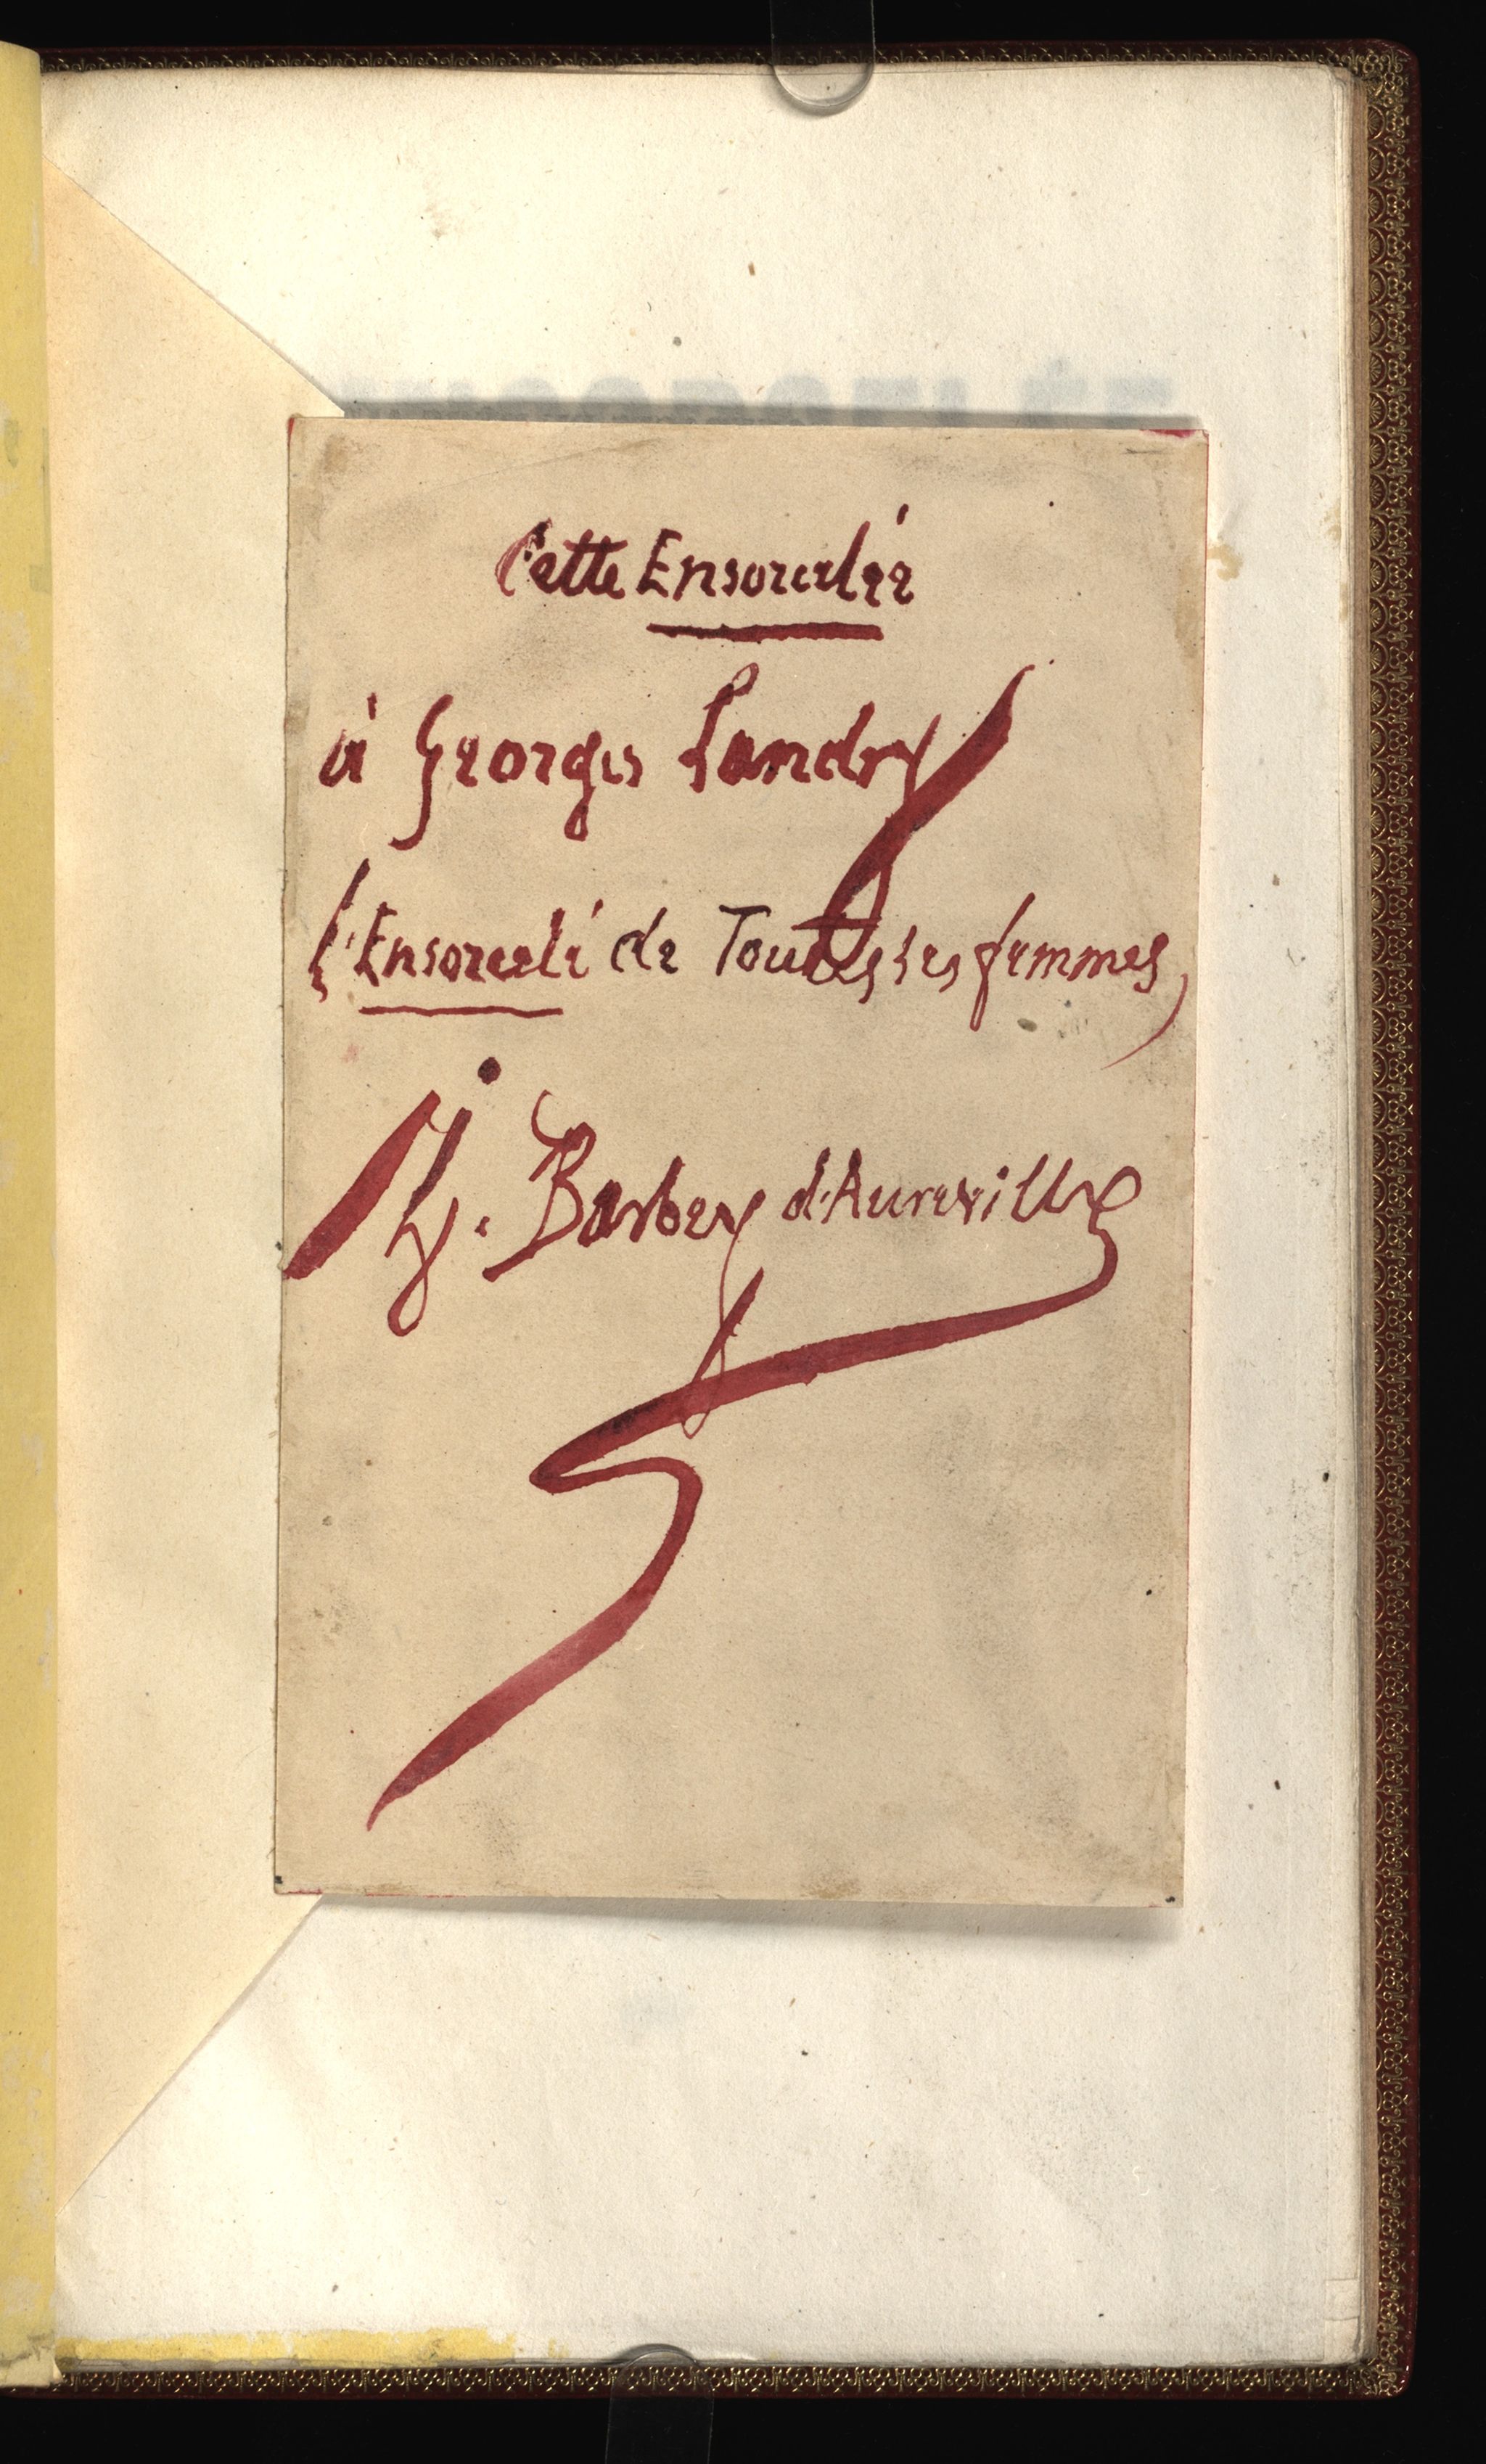 Cette Ensorcelée
à Georges Landry
l'Ensorcelé de Toutes ses femmes,
J. Barbey d'Aurevilly